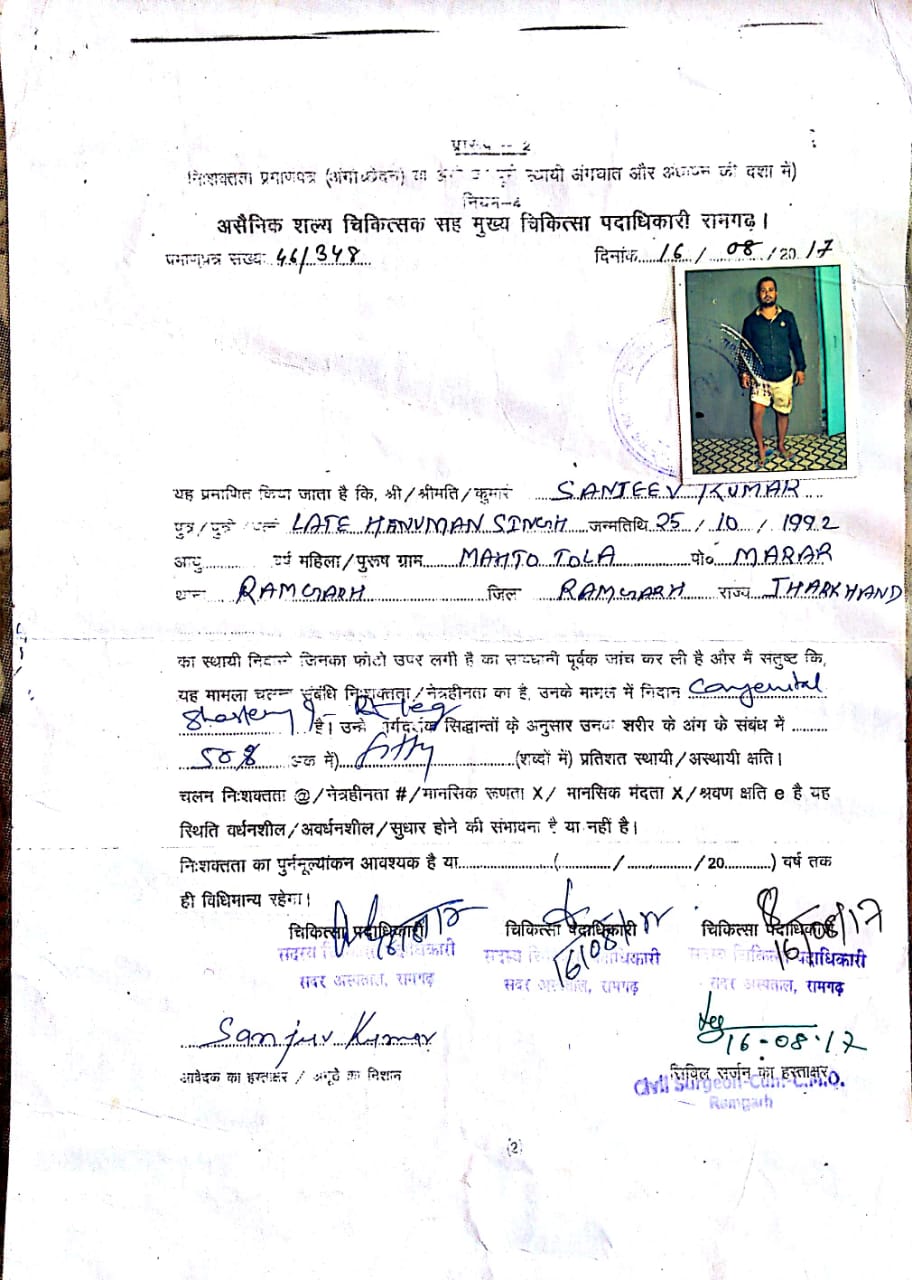 प्रारूप - 2
निःशक्तता प्रमाणपत्र (अंगोच्छेदन) या स्थायी अंगघात और की दशा में)
नियम-4
असैनिक शल्य चिकित्सक सह मुख्य चिकित्सा पदाधिकारी रामगढ़।
प्रमाणपत्र संख्यः 46/348 दिनांक 16 / 08 / 20 17
यह प्रमाणित किया जाता है कि, श्री/श्रीमति/कुमारी SANJEEV KUMAR
पुत्र/पुत्री/पत्नी LATE HANUMAN SINGH जन्मतिथि 25 / 10 / 1992
आयु वर्ष महिला/पुरूष ग्राम MAHTO TOLA पो० MARAR
थाना RAMGARH जिला RAMGARH राज्य JHARKHAND
का स्थायी निवासी जिनका फोटो उपर लगी है का सावधानी पूर्वक जांच कर ली है और मैं संतुष्ट कि,
यह मामला चलन संबंधि निःशक्तता/नेत्रहीनता का है, उनके मामले में निदान Congenital
Rt leg है। उन्हे सिद्धान्तों के अनुसार उनका शरीर के अंग के संबंध में
50% अंक में) fifty (शब्दों में) प्रतिशत स्थायी/अस्थायी क्षति।
चलन निःशक्तता @/नेत्रहीनता #/मानसिक रूणता X/ मानसिक मंदता X/श्रवण क्षति e है यह
स्थिति वर्धनशील/अवर्धनशील/सुधार होने की संभावना है या नहीं है।
निःशक्तता का पुर्नमूल्यांकन आवश्यक है या (........../............/20..........) वर्ष तक
ही विधिमान्य रहेगा।
चिकित्सा पदाधिकारी चिकित्सा पदाधिकारी चिकित्सा पदाधिकारी
16/08/17 16/08/17 16/08/17
सदस्य चिकित्सा पदाधिकारी सदस्य चिकित्सा पदाधिकारी सदस्य चिकित्सा पदाधिकारी
सदर अस्पताल, रामगढ़ सदर अस्पताल, रामगढ़ सदर अस्पताल, रामगढ़
Sanjeev Kumar 16-08-17
आवेदक का हस्ताक्षर / अगूठे का निशान सिविल सर्जन का हस्ताक्षर
Civil Surgeon-Cum-C.M.O.
Ramgarh
(2)